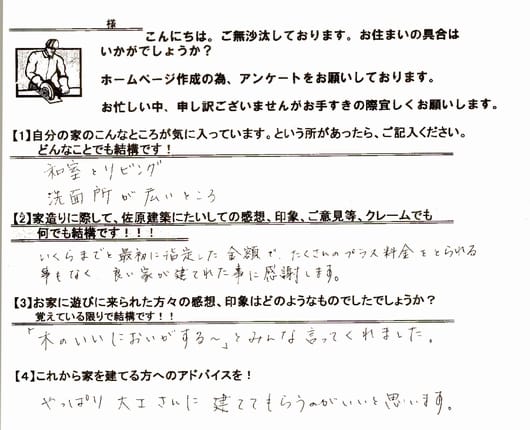 様
こんにちは。ご無沙汰しております。お住まいの具合は
いかがでしょうか？
ホームページ作成の為、アンケートをお願いしております。
お忙しい中、申し訳ございませんがお手すきの際宜しくお願いします。
【1】自分の家のこんなところが気に入っています。という所があったら、ご記入ください。
どんなことでも結構です！
和室とリビング
洗面所が広いところ
【2】家造りに際して、佐原建築にたいしての感想、印象、ご意見等、クレームでも
何でも結構です！！！
いくらまでと最初に指定した金額で、たくさんのプラス料金をとられる
事もなく、良い家が建てれた事に感謝します。
【3】お家に遊びに来られた方々の感想、印象はどのようなものでしたでしょうか？
覚えている限りで結構です！！
「木のいいにおいがする〜」とみんな言ってくれました。
【4】これから家を建てる方へのアドバイスを！
やっぱり大工さんに建ててもらうのがいいと思います。